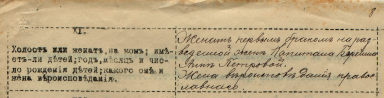 8
VI.
Холостъ или женатъ, на комъ; имѣ-
етъ-ли дѣтей; годъ, мѣсяцъ и чис-
ло рожденія дѣтей; какого онѣ и
жена вѣроисповѣданія.
Женатъ первымъ бракомъ на раз-
веденной женѣ Капитана
Аннѣ Петровой.
Жена вѣроисповѣданія право-
славнаго.